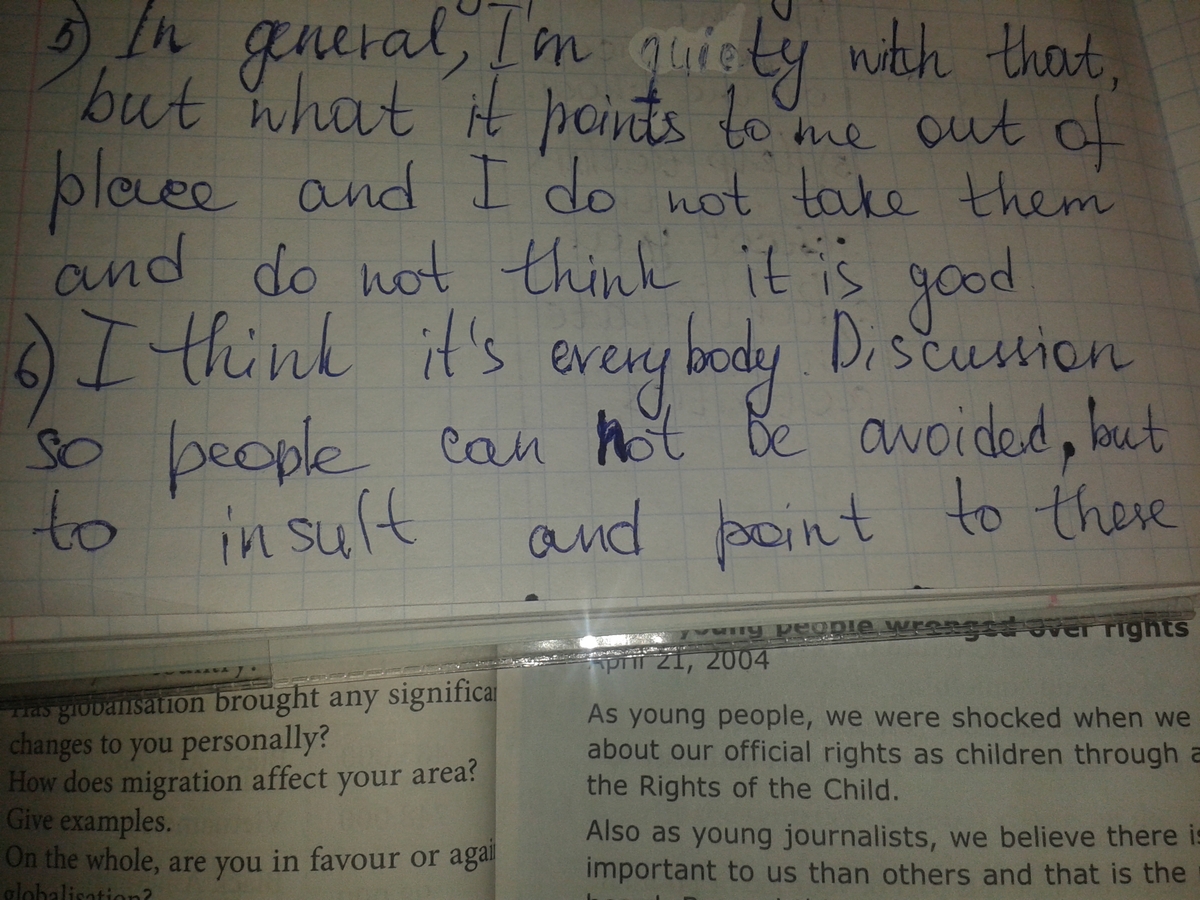 5) In general, I'm quiety with that,
but what it points to me out of
place and I do not take them
and do not think it is good
6) I think it's everybody. Discussion
so people can not be avoided, but
to insult and point to these
young people wronged over rights
April 21, 2004
As young people, we were shocked when we
about our official rights as children through a
the Rights of the Child.
Also as young journalists, we believe there is
important to us than others and that is the
Has globalisation brought any significa
changes to you personally?
How does migration affect your area?
Give examples.
On the whole, are you in favour or agai
globalisation?